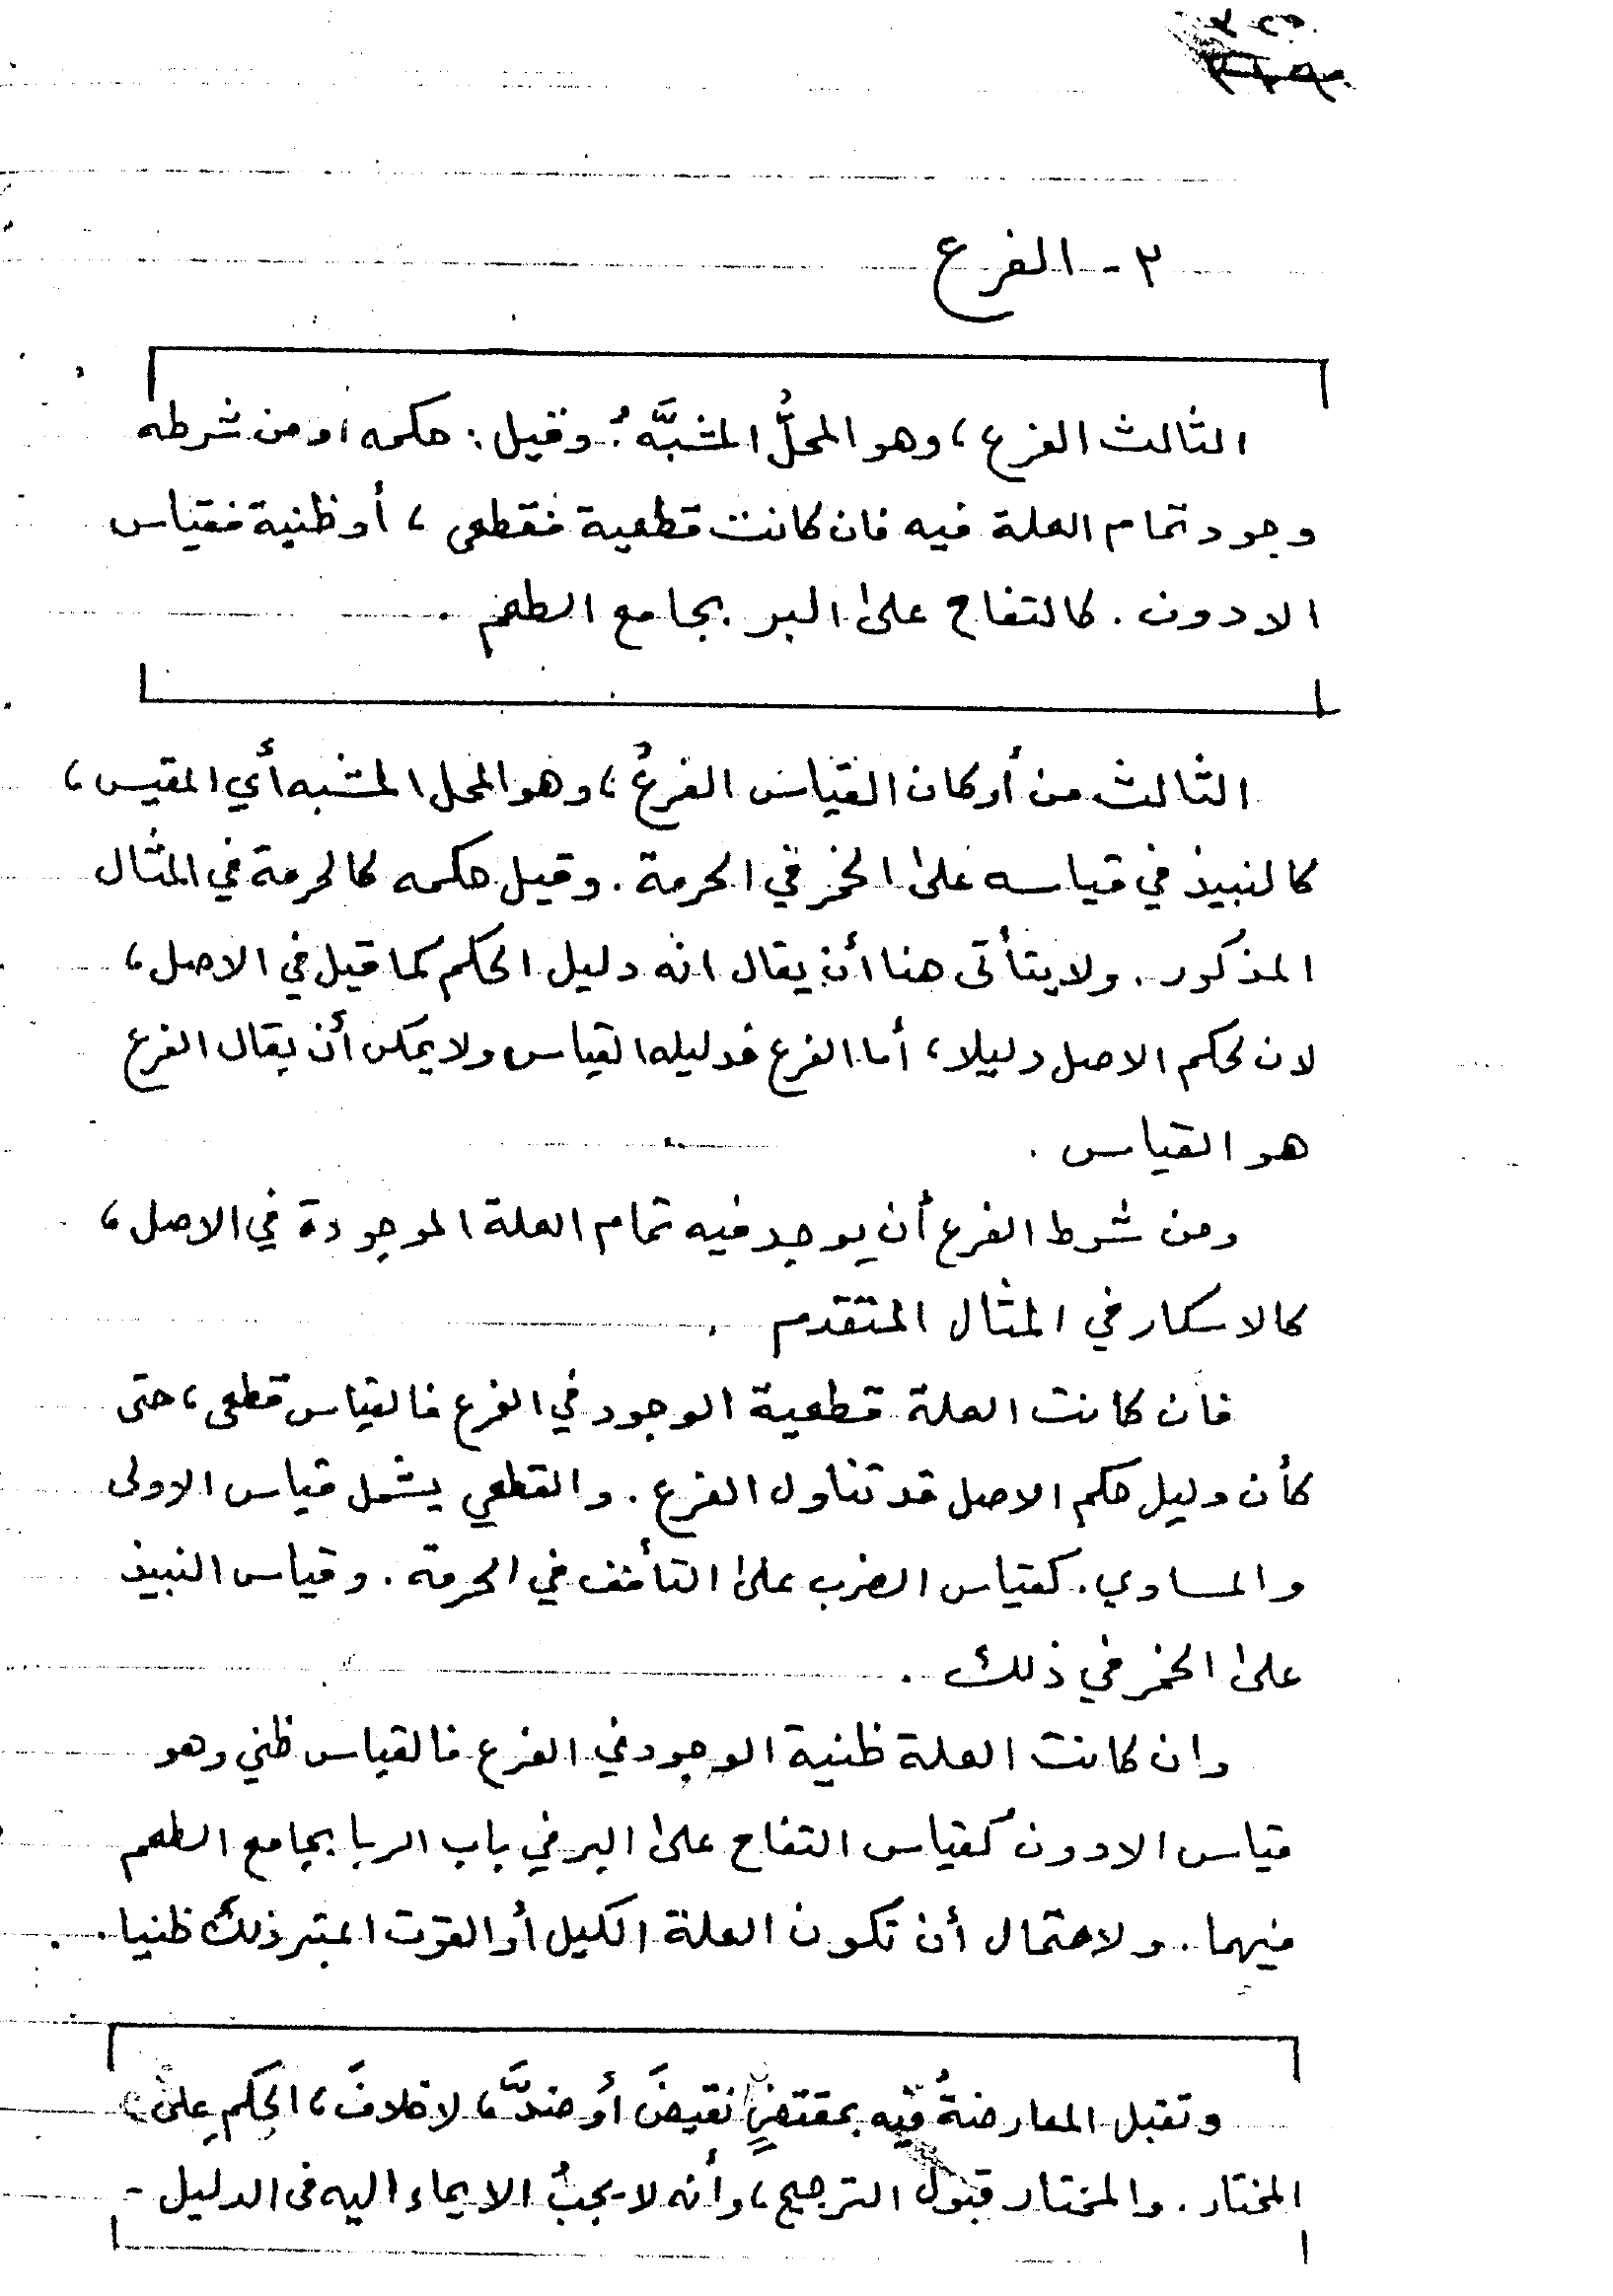 ٣ - الفرع
الثالث الفرع ، وهو المحلُّ المشبَّهُ . وقيل : حكمه . ومن شرطه
وجود تمام العلة فيه فان كانت قطعية فقطعي ، أو ظنية فقياس
الادون . كالتفاح على البر بجامع الطعم .
الثالث من أركان القياس الفرعُ ، وهو المحل المشبه أي المقيس ،
كالنبيذ في قياسه على الخمر في الحرمة . وقيل حكمه كالحرمة في المثال
المذكور . ولا يتأتى هنا أن يقال انه دليل الحكم كما قيل في الاصل ،
لان لحكم الاصل دليلا ، أما الفرع فدليله القياس ولا يمكن أن يقال الفرع
هو القياس .
ومن شرط الفرع أن يوجد فيه تمام العلة الموجودة في الاصل ،
كالاسكار في المثال المتقدم .
فان كانت العلة قطعية الوجود في الفرع فالقياس قطعي ، حتى
كأن دليل حكم الاصل قد تناول الفرع . والقطعي يشمل قياس الاولى
والمساوي . كقياس الضرب على التأفف في الحرمة . وقياس النبيذ
على الخمر في ذلك .
وان كانت العلة ظنية الوجود في الفرع فالقياس ظني وهو
قياس الادون كقياس التفاح على البر في باب الربا بجامع الطعم
فيهما . ولاحتمال أن تكون العلة الكيل أو القوت اعتبر ذلك ظنيا .
وتقبل المعارضةُ فيه بمقتضٍ نقيضَ أو ضدَّ ، لا خلافَ ، الحكمِ على
المختار . والمختار قبول الترجيح ، وأنه لا يجبُ الايماء اليه في الدليل -